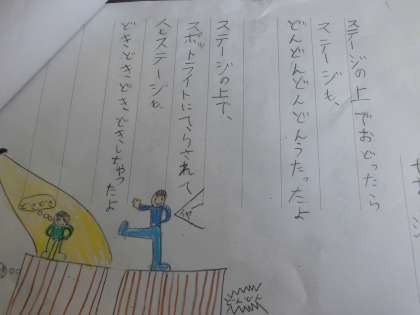 ステージの上でおどったら
ステージも、
どんどんどんどんうたったよ
ステージの上で、
スポットライトにてらされて
人もステージも
どきどきどきどきしちゃったよ
どきどき
どんどん